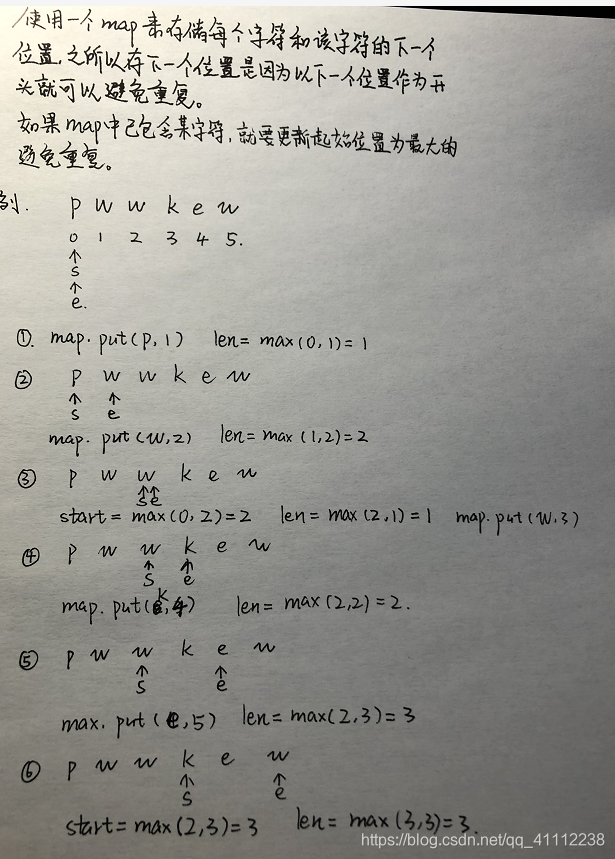 使用一个map来存储每个字符和该字符的下一个
位置,之所以存下一个位置是因为以下一个位置作为开
头就可以避免重复。
如果map中已包含某字符,就要更新起始位置为最大的
避免重复。
例.  p w w k e w
0 1 2 3 4 5.
↑
s
↑
e.
①. map.put(p,1)  len= max(0,1)=1
② p w w k e w
↑ ↑
s e
map.put(w,2)  len=max(1,2)=2
③ p w w k e w
↑↑
se
start= max(0,2)=2  len= max(2,1)=1  map.put(w,3)
④ p w w k e w
↑ ↑
s e
map.put(k,4)  len= max(2,2)=2.
⑤ p w w k e w
↑ ↑
s e
max.put(e,5)  len=max(2,3)=3
⑥ p w w k e w
↑ ↑
s e
start=max(2,3)=3  len= max(3,3)=3.
https://blog.csdn.net/qq_41112238